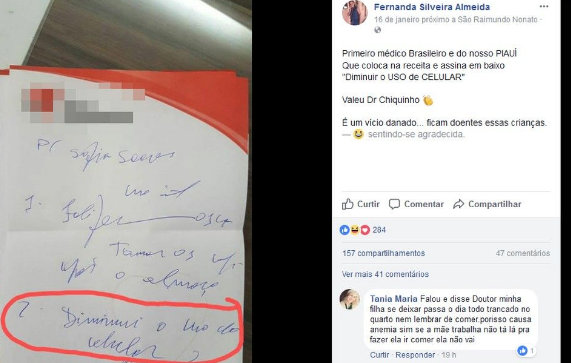 P/ Sofia Soares
1.
Tomar os
o almoço
2. Diminuir o uso do
celular
Fernanda Silveira Almeida
16 de janeiro próximo a São Raimundo Nonato ·
Primeiro médico Brasileiro e do nosso PIAUÍ
Que coloca na receita e assina em baixo
"Diminuir o USO de CELULAR"
Valeu Dr Chiquinho 👏
É um vício danado... ficam doentes essas crianças.
— 😄 sentindo-se agradecida.
Curtir Comentar Compartilhar
284
157 compartilhamentos 47 comentários
Ver mais 41 comentários
Tania Maria Falou e disse Doutor minha
filha se deixar passa o dia todo trancado no
quarto nem lembrar de comer,porisso causa
anemia sim se a mãe trabalha não tá lá pra
fazer ela ir comer ela não vai
1
Curtir · Responder · 19 h